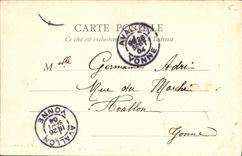 CARTE POSTALE
Ce côté est exclusivement
AVALLON
YONNE
Mlle Germaine Adri
Rue du Marché
Avallon
Yonne
AVALLON
YONNE